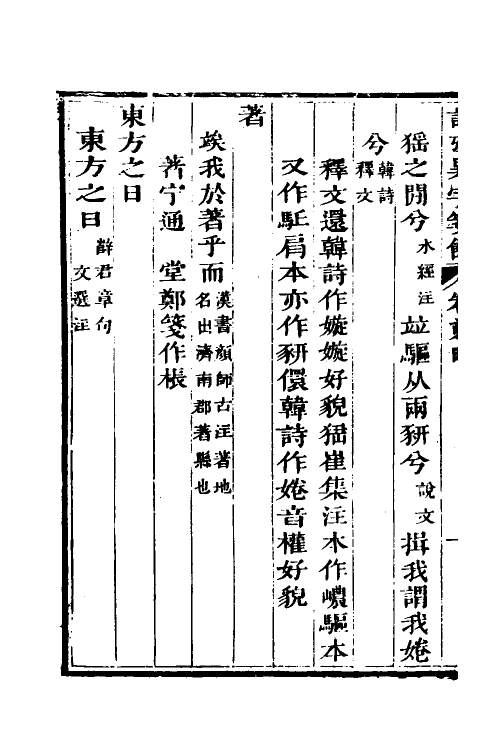 猺之閒兮水經注竝驅从兩豜兮說文揖我謂我婘
兮韓詩釋文
釋文還韓詩作嫙嫙好貌猺崔集注本作巙驅本
又作駈肩本亦作豜儇韓詩作婘音權好貌
著
竢我於著乎而漢書顏師古注著地名出濟南郡著縣也
著宁通　堂鄭箋作棖
東方之日
東方之日薛君章句文選注